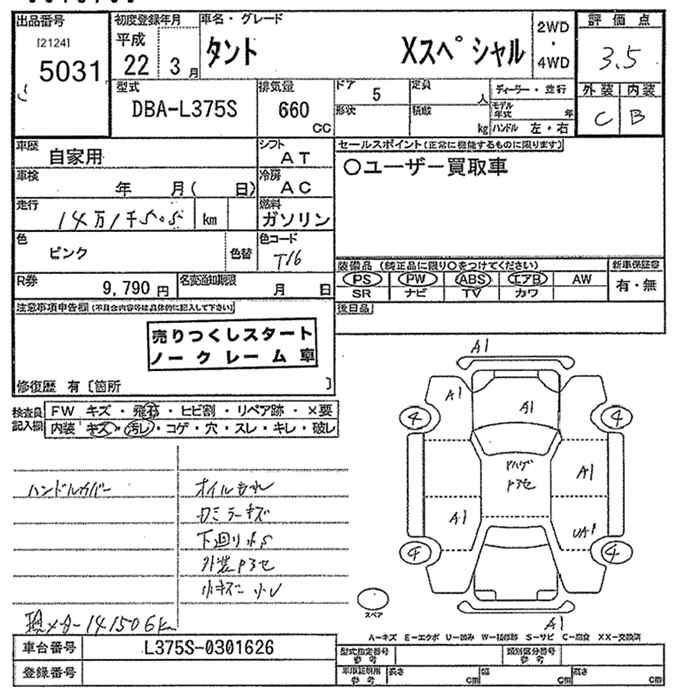 出品番号 [2124] 5031
初度登録年月 平成 22 3月
車名・グレード タント Xスペシャル
2WD・4WD
評価点 3.5
外装 内装
C B
型式 DBA-L375S
排気量 660 CC
ドア 5
形状
定員 人
積載 kg
ディーラー・並行
モデル年式 年
ハンドル 左・右
車歴 自家用
シフト AT
車検 年 月( 日)
冷房 AC
走行 14万1千505 km
燃料 ガソリン
色 ピンク 色替
色コード T16
R券 9,790円
名変通知期限 月 日
セールスポイント(正常に機能するものに限ります)
○ユーザー買取車
装備品(純正品に限り○をつけてください)
PS PW ABS エアB AW
SR ナビ TV カワ
新車保証書
有・無
後日品
注意事項申告欄(不具合内容等は具体的に記入して下さい)
売りつくしスタート
ノークレーム車
修復歴 有〔箇所 〕
検査員記入欄
FW キズ・飛石・ヒビ割・リペア跡・×要
内装 キズ・汚レ・コゲ・穴・スレ・キレ・破レ
ハンドルカバー
オイルもれ
ロミラーキズ
下廻りサS
外装アヌセ
小キズ 小U
現メーター141506km
A1
A1 A1
4 4
アハゲ
アヌセ
A1
A1 UA1
4 4
スペア
A1
A-キズ E-エクボ U-凹み W-補修跡 S-サビ C-腐食 XX-交換済
車台番号 L375S-0301626
登録番号
型式指定番号 参考
類別区分番号 参考
車検証明用 参考 長さ cm 幅 cm 高さ cm